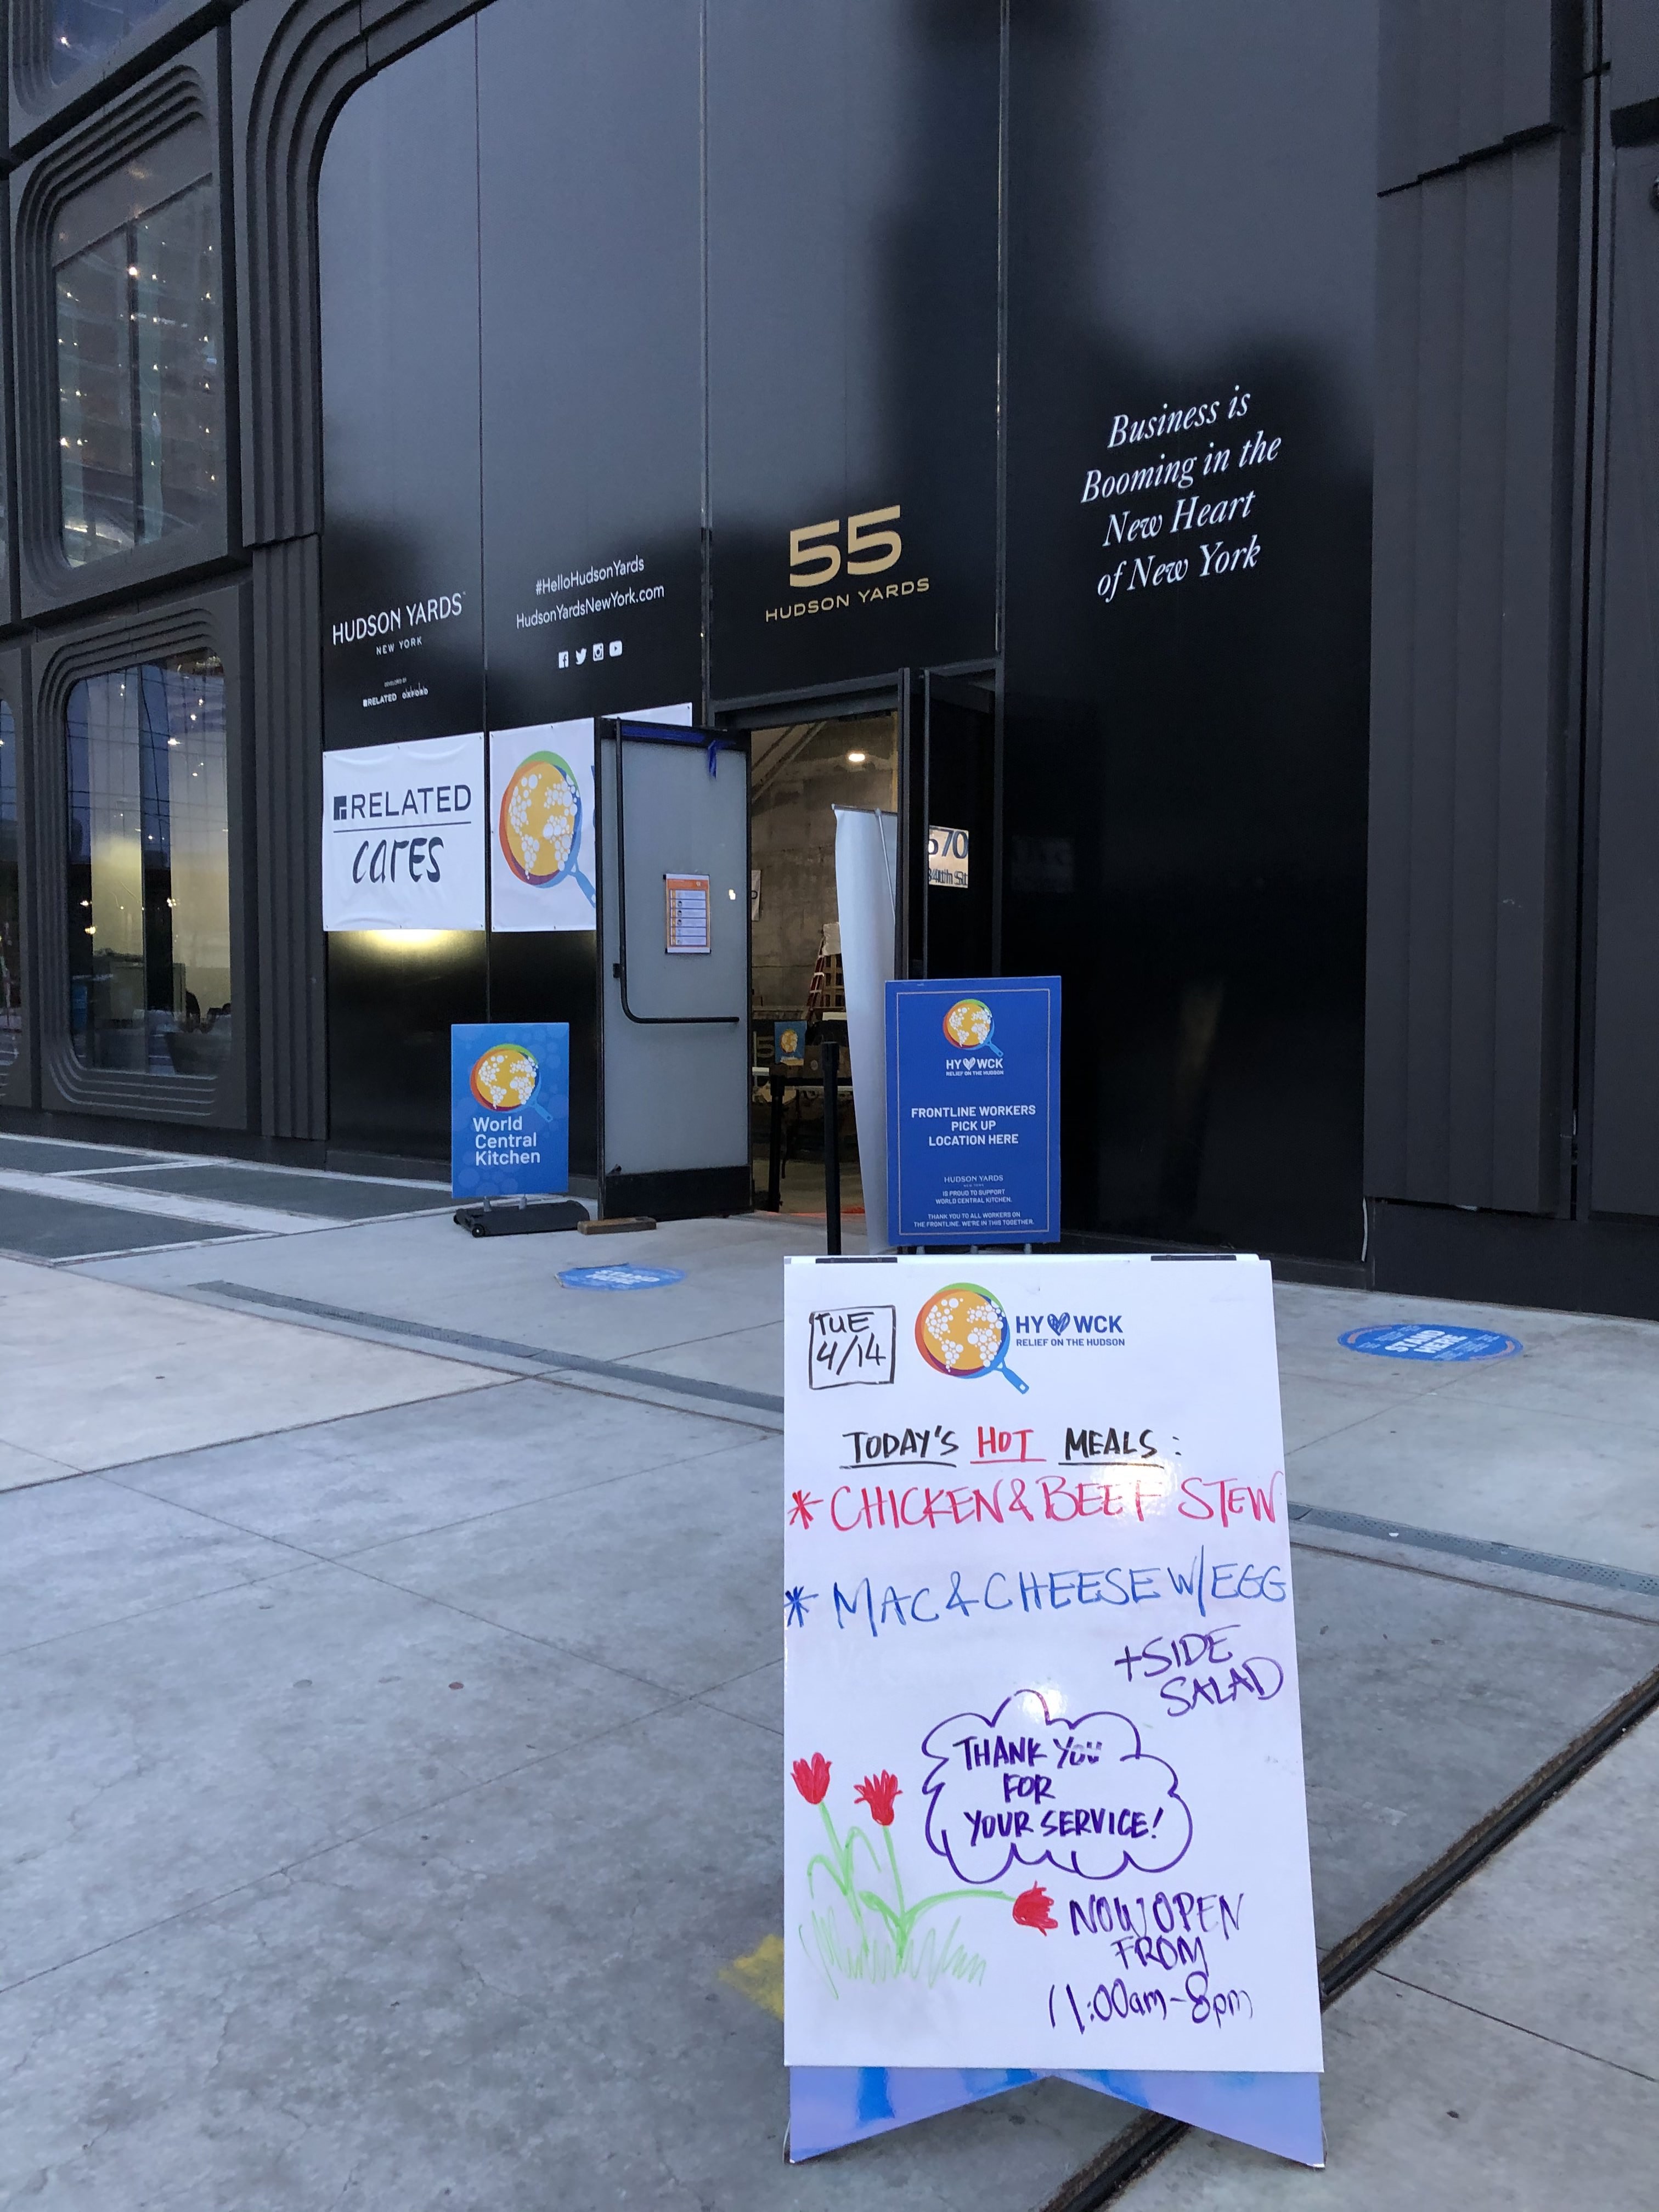 Business is
Booming in the
New Heart
of New York
55
HUDSON YARDS
#HelloHudsonYards
HudsonYardsNewYork.com
HUDSON YARDS
NEW YORK
DEVELOPED BY
RELATED OXFORD
RELATED
cares
570
34th St
World
Central
Kitchen
HY WCK
RELIEF ON THE HUDSON
FRONTLINE WORKERS
PICK UP
LOCATION HERE
HUDSON YARDS
NEW YORK
IS PROUD TO SUPPORT
WORLD CENTRAL KITCHEN.
THANK YOU TO ALL WORKERS ON
THE FRONTLINE. WE'RE IN THIS TOGETHER.
STAND
HERE
TUE
4/14
HY WCK
RELIEF ON THE HUDSON
TODAY'S HOT MEALS:
* CHICKEN & BEEF STEW
* MAC & CHEESE W/EGG
+SIDE
SALAD
THANK YOU
FOR
YOUR SERVICE!
NOW OPEN
FROM
11:00am-8pm